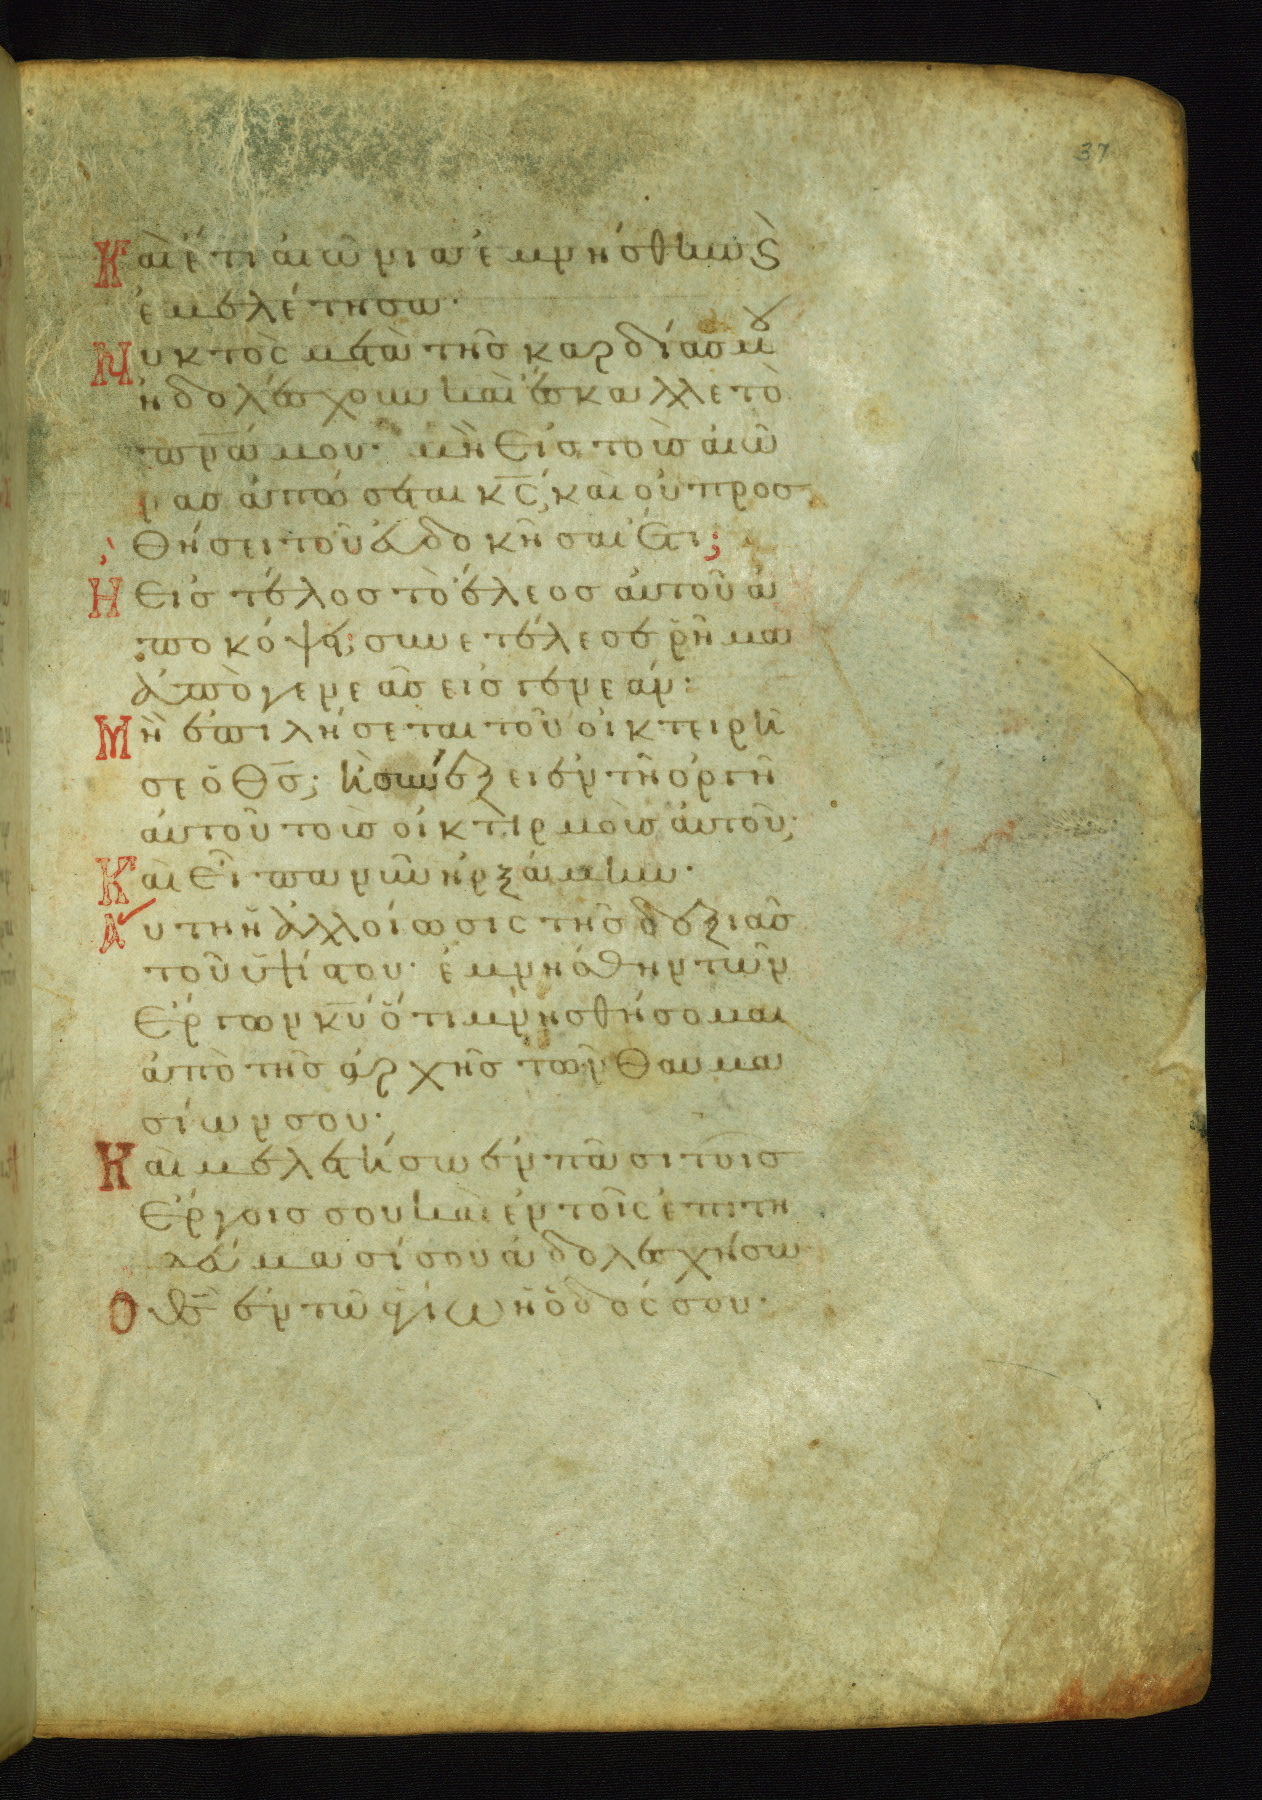 37
Καὶ ἔτι αἰώνια ἐμνήσθην ϗ
ἐμελέτησα·
Νυκτὸς μετὰ τῆς καρδίας μου
ἠδολέσχουν καὶ ἔσκαλλε τὸ
πνα μου· μὴ εἰς τοὺς αἰῶ
νας ἀπώσεται κς, καὶ οὐ προσ
θήσει τοῦ εὐδοκῆσαι ἔτι;
Ἢ εἰς τέλος τὸ ἔλεος αὐτοῦ ἀ
ποκόψει; συνετέλεσε ῥῆμα
ἀπὸ γενεᾶς εἰς γενεάν:
Μὴ ἐπιλήσεται τοῦ οἰκτειρῆ
σε ὁ θς; ἢ συνέξει ἐν τῇ ὀργῇ
αὐτοῦ τοὺς οἰκτιρμοὺς αὐτοῦ;
Καὶ εἶπα νῦν ἠρξάμην·
Αὕτη ἡ ἀλλοίωσις τῆς δεξιᾶς
τοῦ ὑψίστου· ἐμνήσθην τῶν
ἔργων κυ ὅτι μνησθήσομαι
ἀπὸ τῆς ἀρχῆς τῶν θαυμα
σίων σου·
Καὶ μελετήσω ἐν πᾶσι τοῖς
ἔργοις σου καὶ ἐν τοῖς ἐπιτη
δεύμασί σου ἀδολεσχήσω
Ὁ θς ἐν τῷ ἁγίω ἡ ὁδός σου·